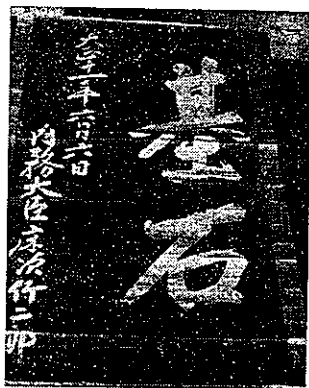 基石
大正十一年六月六日
内務大臣床次竹二郎